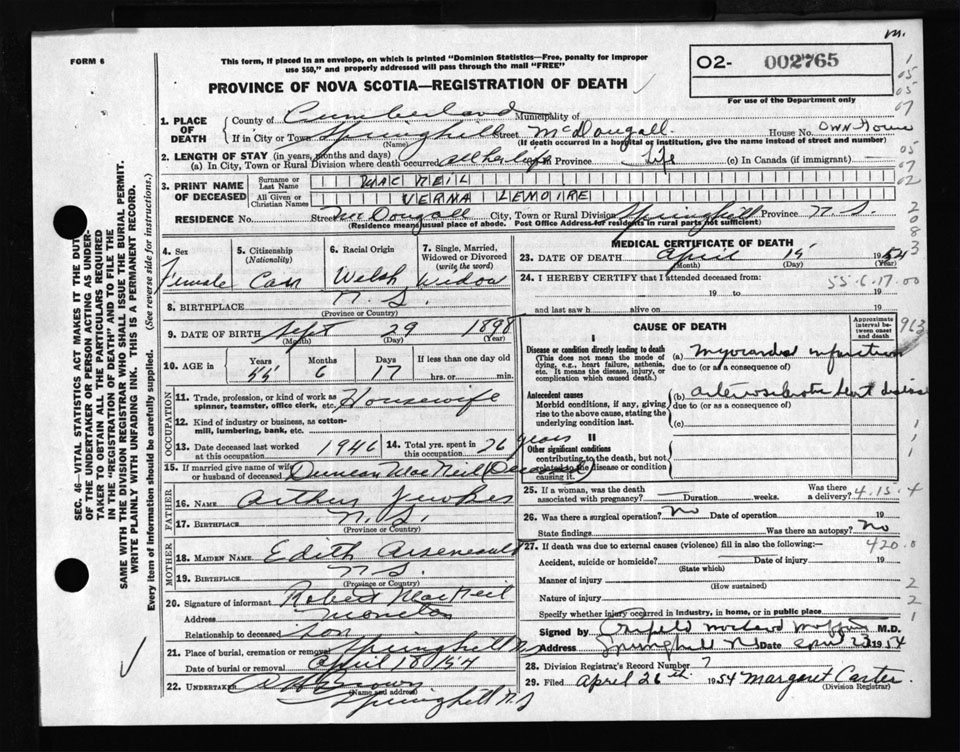 m.
FORM 6
This form, if placed in an envelope, on which is printed "Dominion Statistics—Free, penalty for improper
use $50," and properly addressed will pass through the mail "FREE"
PROVINCE OF NOVA SCOTIA—REGISTRATION OF DEATH
O2- 002765
For use of the Department only
1. PLACE OF DEATH
County of Cumberland Municipality of
If in City or Town Springhill Street McDougall House No. OWN Home
(Name) (If death occurred in a hospital or institution, give the name instead of street and number)
2. LENGTH OF STAY (in years, months and days)
(a) In City, Town or Rural Division where death occurred all her life in Province Life (c) In Canada (if immigrant) —
3. PRINT NAME OF DECEASED
Surname or Last Name MAC NEIL
All Given or Christian Names VERNA LEMOIRE
RESIDENCE No. Street McDougall City, Town or Rural Division Springhill Province N.S.
(Residence means usual place of abode. Post Office Address for residents in rural parts not sufficient)
4. Sex Female
5. Citizenship (Nationality) Can
6. Racial Origin Welsh
7. Single, Married, Widowed or Divorced (write the word) Widow
8. BIRTHPLACE N.S.
(Province or Country)
9. DATE OF BIRTH Sept 29 1898
(Month) (Day) (Year)
10. AGE in Years 55 Months 6 Days 17 If less than one day old
hrs. or min.
OCCUPATION
11. Trade, profession or kind of work as spinner, teamster, office clerk, etc. Housewife
12. Kind of industry or business, as cotton-mill, lumbering, bank, etc.
13. Date deceased last worked at this occupation 1946 14. Total yrs. spent in this occupation 26 years
15. If married give name of wife or husband of deceased Duncan MacNeil Deceased
FATHER
16. NAME Arthur
17. BIRTHPLACE N.S.
(Province or Country)
MOTHER
18. MAIDEN NAME Edith Arseneault
19. BIRTHPLACE N.S.
(Province or Country)
20. Signature of informant Robert MacNeil
Address Moncton
Relationship to deceased Son
21. Place of burial, cremation or removal Springhill NS
Date of burial or removal April 18 1954
22. UNDERTAKER A H Brown
(Name and address)
Springhill N.S
MEDICAL CERTIFICATE OF DEATH
23. DATE OF DEATH April 15 1954
(Month) (Day) (Year)
24. I HEREBY CERTIFY that I attended deceased from:
55.6.17.00
19 to 19
and last saw h alive on 19
CAUSE OF DEATH
Approximate interval between onset and death
963
I
Disease or condition directly leading to death
(This does not mean the mode of dying, e.g., heart failure, asthenia, etc. It means the disease, injury, or complication which caused death.)
(a) Myocardial infarction
due to (or as a consequence of)
Antecedent causes
Morbid conditions, if any, giving rise to the above cause, stating the underlying condition last.
(b) arteriosclerotic heart disease
due to (or as a consequence of)
(c)
II
Other significant conditions contributing to the death, but not related to the disease or condition causing it.
25. If a woman, was the death associated with pregnancy? — Duration weeks. Was there a delivery? 4.15.4
26. Was there a surgical operation? No Date of operation 19
State findings Was there an autopsy? No
27. If death was due to external causes (violence) fill in also the following:— 420.0
Accident, suicide or homicide? Date of injury 19
(State which)
Manner of injury
(How sustained)
Nature of injury
Specify whether injury occurred in industry, in home, or in public place
Signed by M.D.
Address Springhill NS Date April 1954
28. Division Registrar's Record Number 7
29. Filed April 26th 1954 Margaret Carter.
(Division Registrar)
SEC. 46—VITAL STATISTICS ACT MAKES IT THE DUTY
OF THE UNDERTAKER OR PERSON ACTING AS UNDER-
TAKER TO OBTAIN ALL THE PARTICULARS REQUIRED
IN THE "REGISTRATION OF DEATH" AND TO FILE THE
SAME WITH THE DIVISION REGISTRAR WHO SHALL ISSUE THE BURIAL PERMIT.
WRITE PLAINLY WITH UNFADING INK. THIS IS A PERMANENT RECORD.
Every item of information should be carefully supplied. (See reverse side for instructions.)
1
05
05
07
05
07
02
2
0
8
3
1
1
1
2
2
1